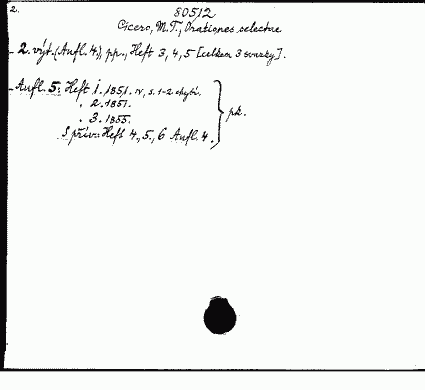 2.
80512
Cicero, M.T., Orationes selectae
- 2. výt. (Aufl. 4.), pp., Heft 3, 4, 5 [celkem 3 svazky].
- Aufl. 5: Heft 1. 1851. IV, s. 1-2 chybí.
" 2. 1851.
" 3. 1855.
S přív.: Heft 4., 5., 6 Aufl. 4.
pk.